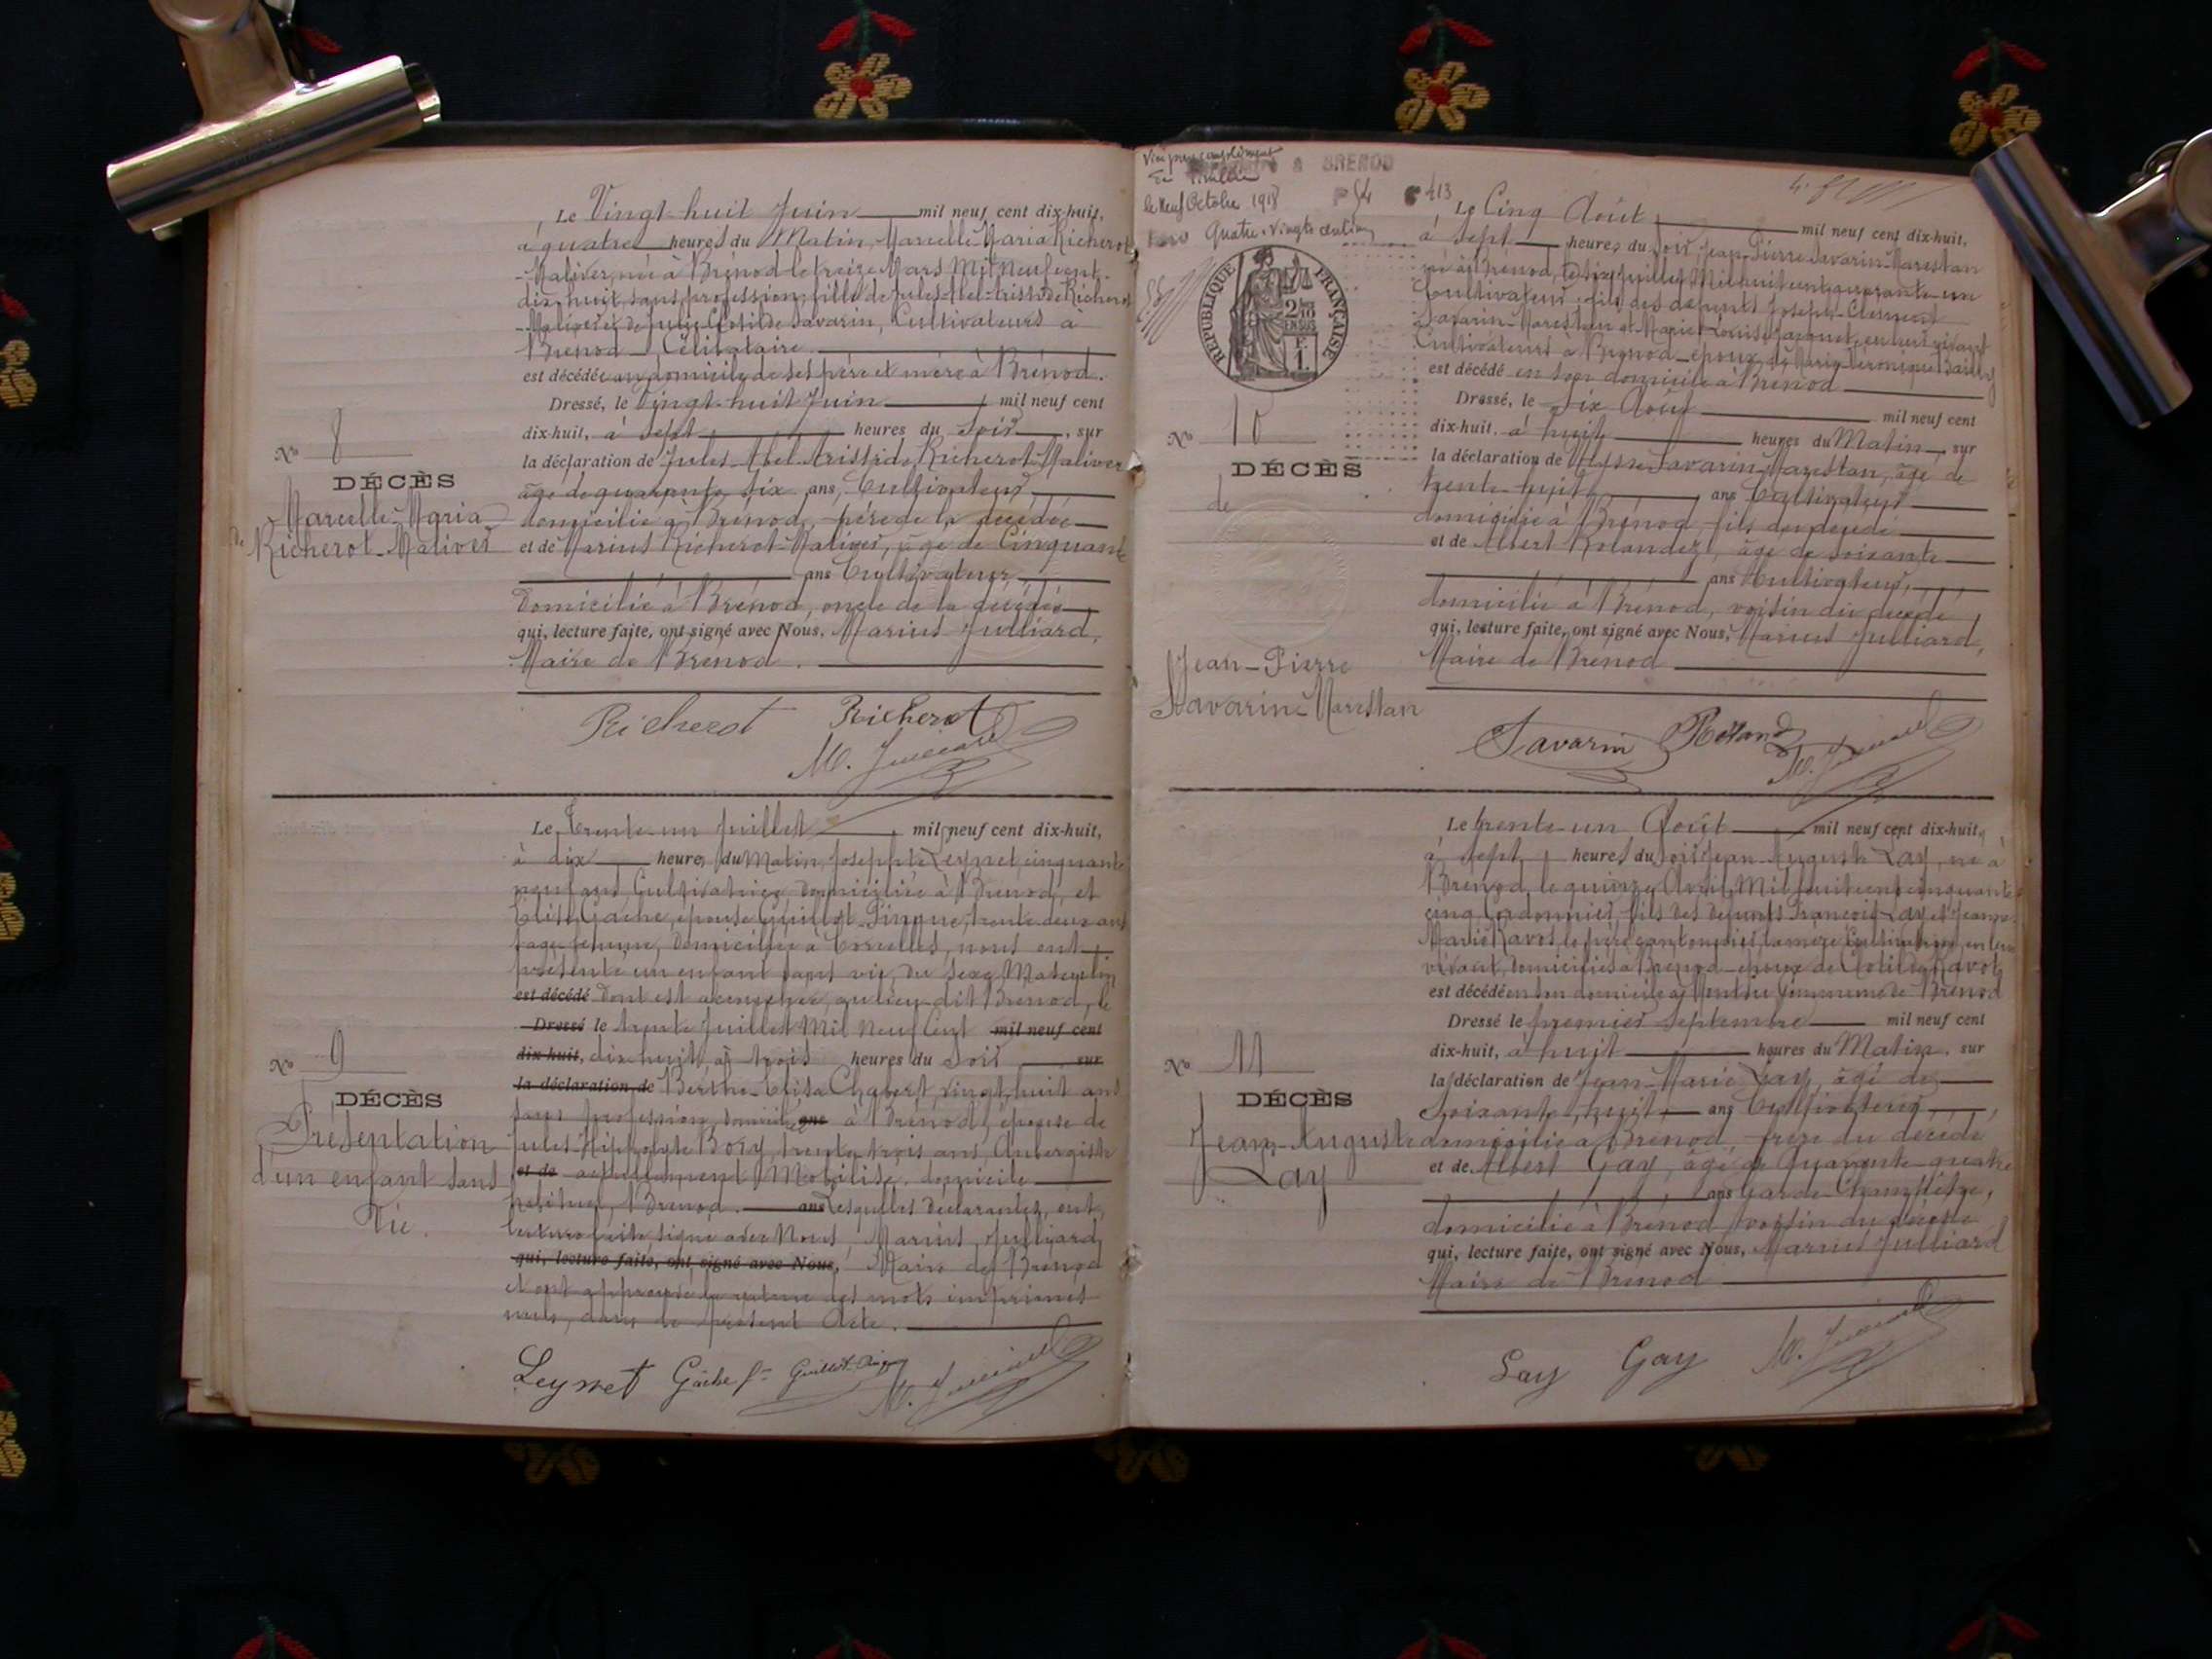 Le Vingt-huit Juin mil neuf cent dix-huit,
à quatre heures du Matin, Marcelle Maria Richerot
-Malivert, née à Brénod le treize Mars Mil neuf cent
dix-huit, sans profession, fille de Jules Abel Aristide Richerot
-Malivert et de Julie Clotilde Savarin, Cultivateurs à
Brénod _ Célibataire
est décédée au domicile de ses père et mère à Brénod.
Dressé, le Vingt-huit Juin mil neuf cent
dix-huit, à sept heures du Soir, sur
la déclaration de Jules Abel Aristide Richerot-Malivert
âgé de quarante six ans, Cultivateur
domicilié à Brénod, père de la décédée
et de Marius Richerot-Malivert, âgé de Cinquante
ans Cultivateur
domicilié à Brénod, oncle de la décédée
qui, lecture faite, ont signé avec Nous, Marius Julliard,
Maire de Brénod.
No 8
DÉCÈS
de Marcelle-Maria
Richerot-Malivert
Richerot Richerot
M. Julliard
Le Trente-un Juillet mil neuf cent dix-huit,
à dix heures du Matin, Josephte Leynet cinquante
neuf ans, Cultivatrice, domiciliée à Brénod, et
Elisa Gâche, épouse Guillot-Pingue, trente-deux ans
sage-femme, domiciliée à Corcelles, nous ont
présenté un enfant sans vie, du sexe Masculin
est décédé dont est accouchée, au lieu-dit Brénod, le
Dressé le trente Juillet Mil Neuf Cent mil neuf cent
dix-huit, dix-huit, à trois heures du Soir sur
la déclaration de Berthe-Elisa Chabert, vingt-huit ans
sans profession, domiciliée ans à Brénod, épouse de
Jules Hippolyte Bory, trente trois ans, Aubergiste
et de actuellement Mobilisé, domicile
habituel, Brénod. ans Lesquelles déclarantes, ont,
lecture faite, signé avec Nous, Marius Julliard
qui, lecture faite, ont signé avec Nous, Maire de Brénod
et ont approuvé la rature des mots imprimés
nuls, dans le présent Acte.
No 9
DÉCÈS
Présentation
d'un enfant sans
Vie.
Leynet Gâche f. Guillot-Pingue M. Julliard
le Neuf Octobre 1918
Quatre-vingts
BRENOD
413
RÉPUBLIQUE FRANÇAISE
No 10
DÉCÈS
de
Jean-Pierre
Savarin-Marestan
Le Cinq Août mil neuf cent dix-huit,
à sept heures du Soir, Jean-Pierre Savarin-Marestan
né à Brénod, le six Juillet Mil huit cent quarante-un
Cultivateur, fils des défunts Joseph-Clément
Savarin-Marestan et Marie-Louise en leur vivant
Cultivateurs à Brénod _ époux de Marie-Véronique
est décédé en son domicile à Brénod
Dressé, le Six Août mil neuf cent
dix-huit, à huit heures du Matin, sur
la déclaration de Ulysse Savarin-Marestan, âgé de
trente-huit ans Cultivateur
domicilié à Brénod, fils du décédé
et de Albert Rolandez, âgé de soixante
ans Cultivateur,
domicilié à Brénod, voisin du décédé
qui, lecture faite, ont signé avec Nous, Marius Julliard,
Maire de Brénod
Savarin Rolandez
M. Julliard
Le trente-un Août mil neuf cent dix-huit,
à sept heures du Soir Jean-Auguste Lay, né à
Brénod, le quinze Avril Mil huit cent cinquante
cinq, Cordonnier, fils des défunts François Lay et Jeanne
Marie Ravot, le père cantonnier, la mère Cultivatrice, en leur
vivant, domiciliés à Brénod _ époux de Clotilde Ravot
est décédé en son domicile à commune de Brénod
Dressé le premier Septembre mil neuf cent
dix-huit, à huit heures du Matin, sur
la déclaration de Jean-Marie Lay, âgé de
soixante-huit ans Cultivateur,
domicilié à Brénod, frère du décédé
et de Albert Gay, âgé de Quarante-quatre
ans Garde-Champêtre,
domicilié à Brénod, voisin du décédé
qui, lecture faite, ont signé avec Nous, Marius Julliard
Maire de Brénod
No 11
DÉCÈS
Jean-Auguste
Lay
Lay Gay M. Julliard